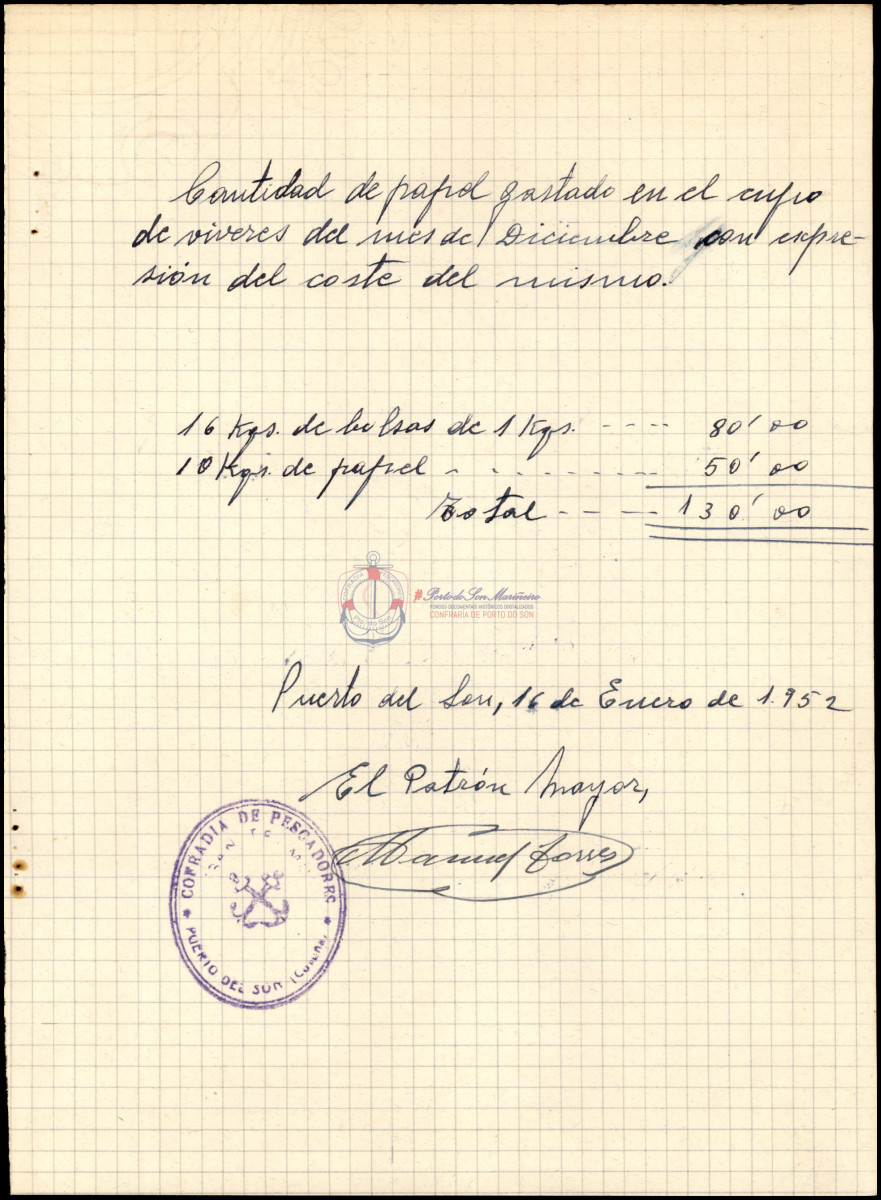 Cantidad de papel gastado en el cupo
de viveres del mes de Diciembre con expre-
sión del coste del mismo.
16 Kgs. de bolsas de 1 Kgs. - - - - 80'00
10 Kgs. de papel - - - - - - - - 50'00
Total - - - - - 130'00
COFRADIA PESCADORES
Pto. do Son
#Porto do Son Mariñeiro
FONDOS DOCUMENTAIS HISTÓRICOS DIGITALIZADOS
CONFRARIA DE PORTO DO SON
Puerto del Son, 16 de Enero de 1.952
El Patrón Mayor,
Manuel Torres
COFRADIA DE PESCADORES
PUERTO DEL SON (Coruña)